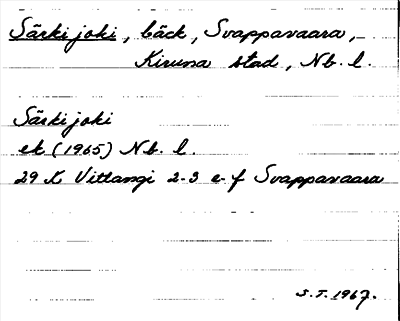 Särkijoki, bäck, Svappavaara,
Kiruna stad, Nb. l.
Särkijoki
ek (1965) Nb. l.
29 K Vittangi 2-3 e-f Svappavaara
S.T. 1967.